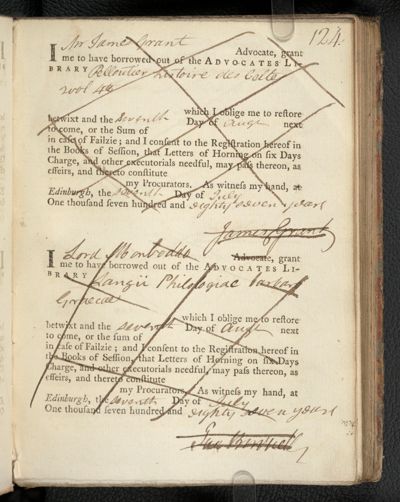 124.
I Mr James Grant Advocate, grant
me to have borrowed out of the ADVOCATES LI-
BRARY Pelloutier histoire des Celtes
2 vol 4to
which I oblige me to reſtore
betwixt and the seventh Day of Augt next
to come, or the Sum of
in caſe of Failzie; and I conſent to the Regiſtration hereof in
the Books of Seſſion, that Letters of Horning on ſix Days
Charge, and other executorials needful, may paſs thereon, as
effeirs, and thereto conſtitute
my Procurators. As witneſs my hand, at
Edinburgh, the seventh Day of July
One thouſand ſeven hundred and eighty seven years
James Grant
I Lord Monboddo Advocate, grant
me to have borrowed out of the ADVOCATES LI-
BRARY Langii Philologiae Barbaro
Graecae
which I oblige me to reſtore
betwixt and the seventh Day of Augt next
to come, or the ſum of
in caſe of Failzie; and I conſent to the Regiſtration hereof in
the Books of Seſſion, that Letters of Horning on ſix Days
Charge, and other executorials needful, may paſs thereon, as
effeirs, and thereto conſtitute
my Procurators. As witneſs my hand, at
Edinburgh, the seventh Day of July
One thouſand ſeven hundred and eighty seven years